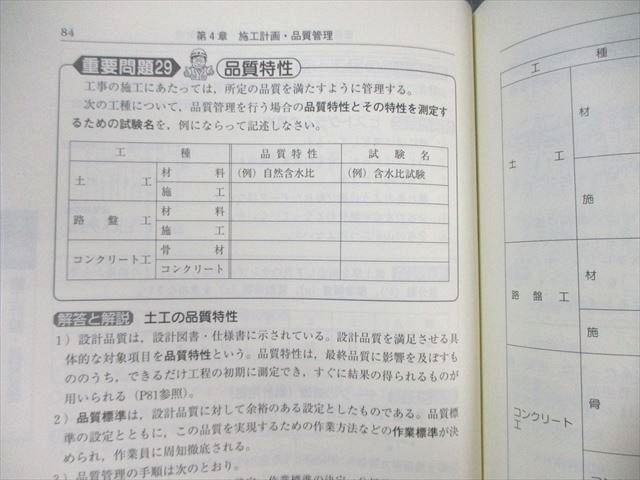 84
第4章 施工計画・品質管理
重要問題29 品質特性
工事の施工にあたっては，所定の品質を満たすように管理する。
次の工種について，品質管理を行う場合の品質特性とその特性を測定す
るための試験名を，例にならって記述しなさい。
工 種 品質特性 試験名
土 工 材 料 (例) 自然含水比 (例) 含水比試験
施 工
路 盤 工 材 料
施 工
コンクリート工 骨 材
コンクリート
解答と解説 土工の品質特性
1) 設計品質は，設計図書・仕様書に示されている。設計品質を満足させる具
体的な対象項目を品質特性という。品質特性は，最終品質に影響を及ぼすも
ののうち，できるだけ工程の初期に測定でき，すぐに結果の得られるものが
用いられる (P81参照)。
2) 品質標準は，設計品質に対して余裕のある設定としたものである。品質標
準の設定とともに，この品質を実現するための作業方法などの作業標準が決
められ，作業員に周知徹底される。
3) 品質管理の手順は次のとおり。
工 種
土 工
材
施
路 盤 工
材
施
コンクリート
工
骨